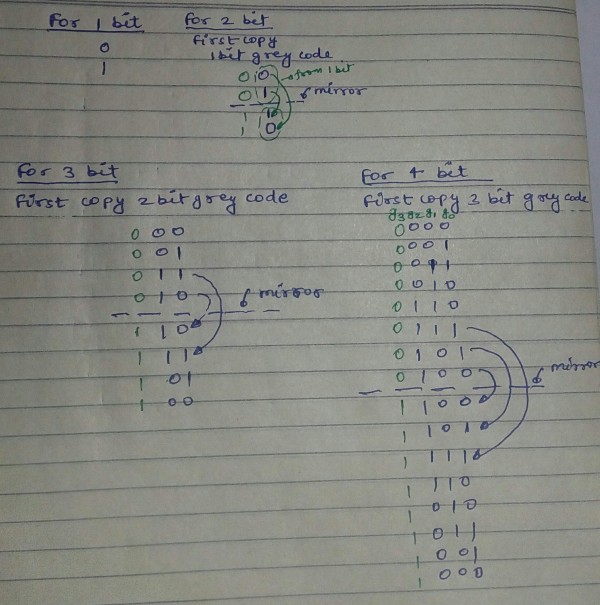 For 1 bit
0
1
For 2 bit
First copy
1 bit grey code
0 0 from 1 bit
0 1
mirror
1 1
1 0
For 3 bit
First copy 2 bit grey code
0 00
0 01
0 11
0 10
mirror
1 10
1 11
1 01
1 00
For 4 bit
First copy 3 bit grey code
g3 g2 g1 g0
0 000
0 001
0 011
0 010
0 110
0 111
0 101
0 100
mirror
1 100
1 101
1 111
1 110
1 010
1 011
1 001
1 000